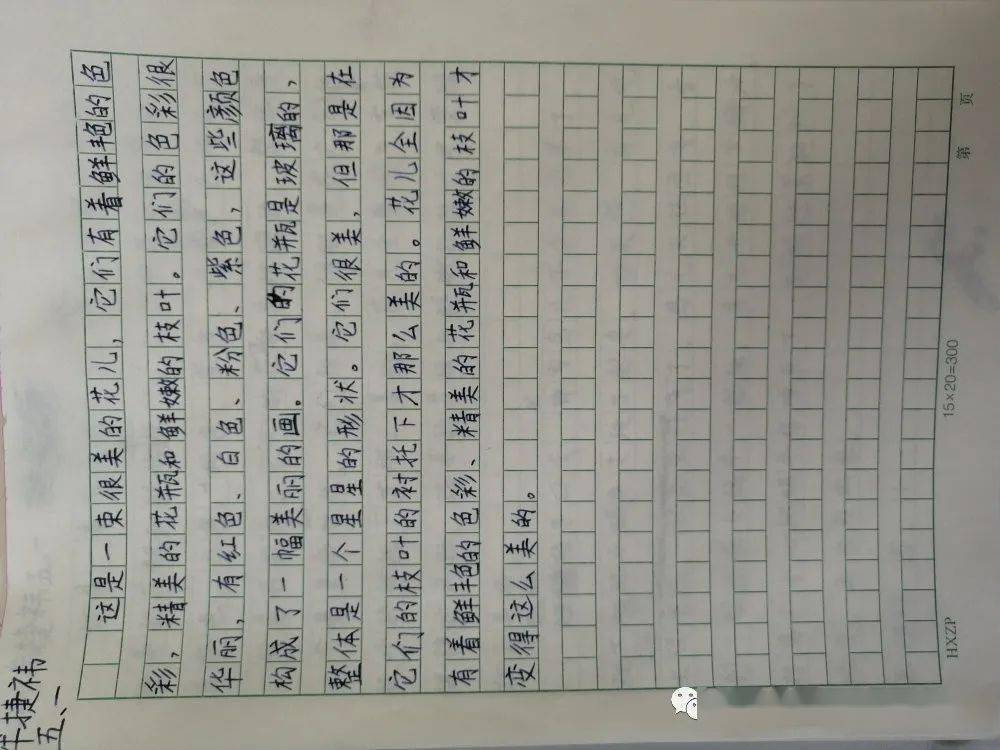 捷祎
五、一
这是一束很美的花儿，它们有着鲜艳的色
彩，精美的花瓶和鲜嫩的枝叶。它们的色彩很
华丽，有红色、白色、粉色、紫色，这些颜色
构成了一幅美丽的画。它们的花瓶是玻璃的，
整体是一个星星的形状。它们很美，但那是在
它们的枝叶的衬托下才那么美的。花儿全因为
有着鲜艳的色彩、精美的花瓶和鲜嫩的枝叶才
变得这么美的。
HXZP 15×20=300 第 页